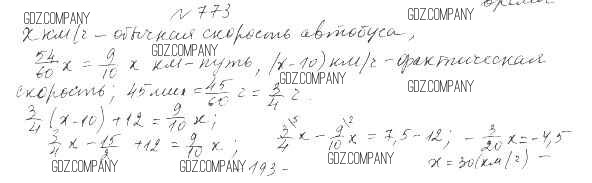 №773
GDZ.COMPANY GDZ.COMPANY
x км/ч – обычная скорость автобуса,
GDZ.COMPANY
54/60 x = 9/10 x км – путь, (x-10) км/ч – фактическая
GDZ.COMPANY GDZ.COMPANY
скорость; 45 мин = 45/60 ч = 3/4 ч.
3/4 (x-10) + 12 = 9/10 x;
3/4 x - 15/2 + 12 = 9/10 x; 3/4 \5 x - 9/10 \2 x = 7,5 - 12; - 3/20 x = -4,5
x = 30 (км/ч) –
GDZ.COMPANY GDZ.COMPANY GDZ.COMPANY
193 -